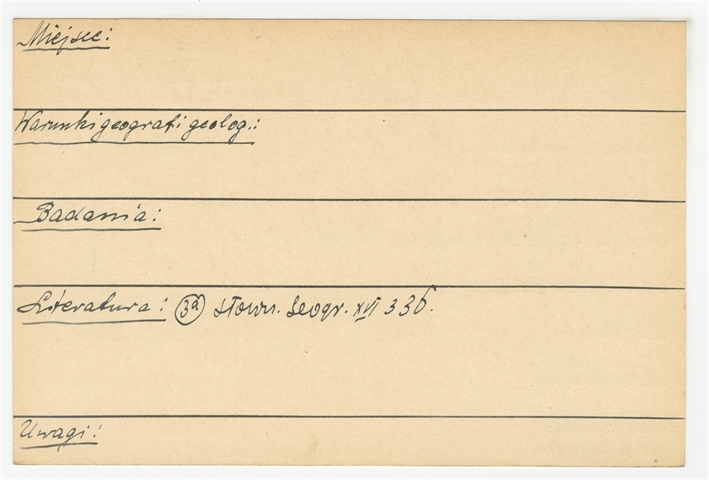 Miejsce:
Warunki geograf i geolog.:
Badania:
Literatura: 3a Słown. Geogr. XVI 336.
Uwagi: